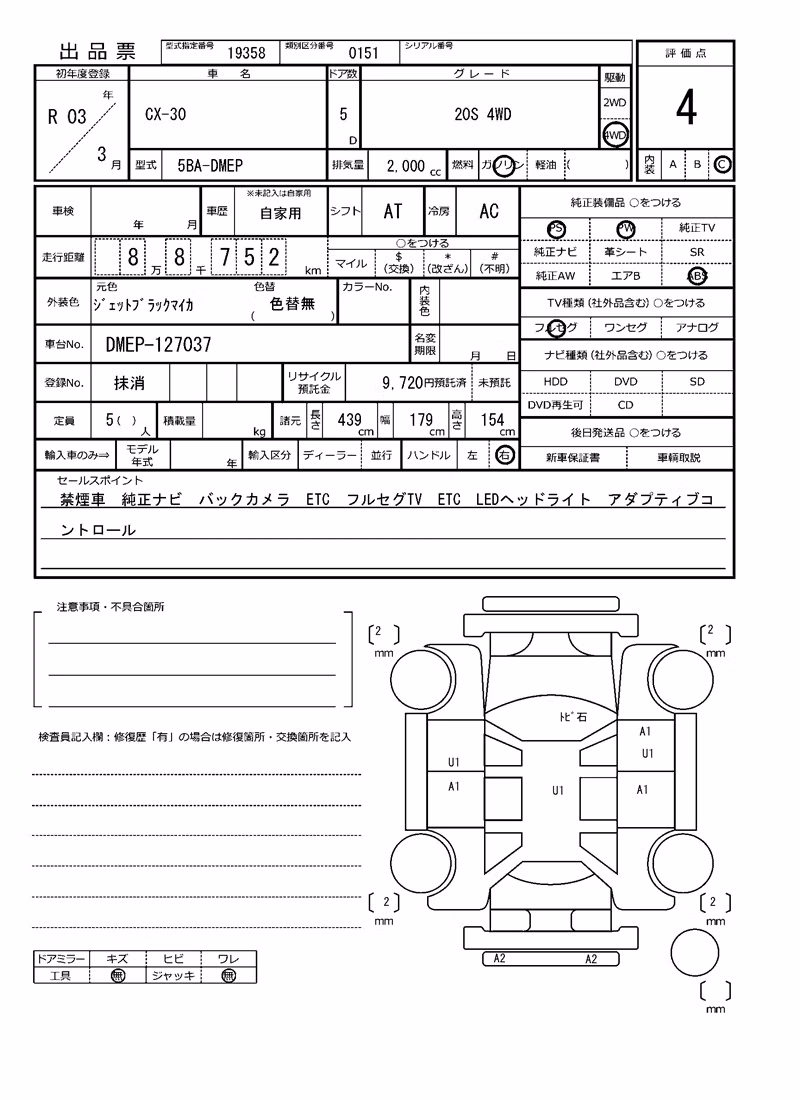 出品票 型式指定番号 19358 類別区分番号 0151 シリアル番号
評価点
4
内装 A B C
初年度登録 車名 ドア数 グレード 駆動
R 03 年 3 月 CX-30 5 D 20S 4WD 2WD 4WD
型式 5BA-DMEP 排気量 2,000 cc 燃料 ガソリン 軽油 ( )
車検 年 月 車歴 ※未記入は自家用 自家用 シフト AT 冷房 AC
走行距離 8 万 8 千 7 5 2 km ○をつける
マイル $ (交換) * (改ざん) # (不明)
外装色 元色 ジェットブラックマイカ 色替 ( 色替無 ) カラーNo. 内装色
車台No. DMEP-127037 名変期限 月 日
登録No. 抹消 リサイクル預託金 9,720円預託済 未預託
定員 5 ( ) 人 積載量 kg 諸元 長さ 439 cm 幅 179 cm 高さ 154 cm
輸入車のみ⇒ モデル年式 年 輸入区分 ディーラー 並行 ハンドル 左 右
純正装備品 ○をつける
PS PW 純正TV
純正ナビ 革シート SR
純正AW エアB ABS
TV種類 (社外品含む) ○をつける
フルセグ ワンセグ アナログ
ナビ種類 (社外品含む) ○をつける
HDD DVD SD
DVD再生可 CD
後日発送品 ○をつける
新車保証書 車輌取説
セールスポイント
禁煙車 純正ナビ バックカメラ ETC フルセグTV ETC LEDヘッドライト アダプティブコ
ントロール
注意事項・不具合箇所
検査員記入欄：修復歴「有」の場合は修復箇所・交換箇所を記入
ドアミラー キズ ヒビ ワレ
工具 無 ジャッキ 無
2 mm
2 mm
トビ石
A1
U1
U1
A1
U1
A1
2 mm
2 mm
A2 A2
mm